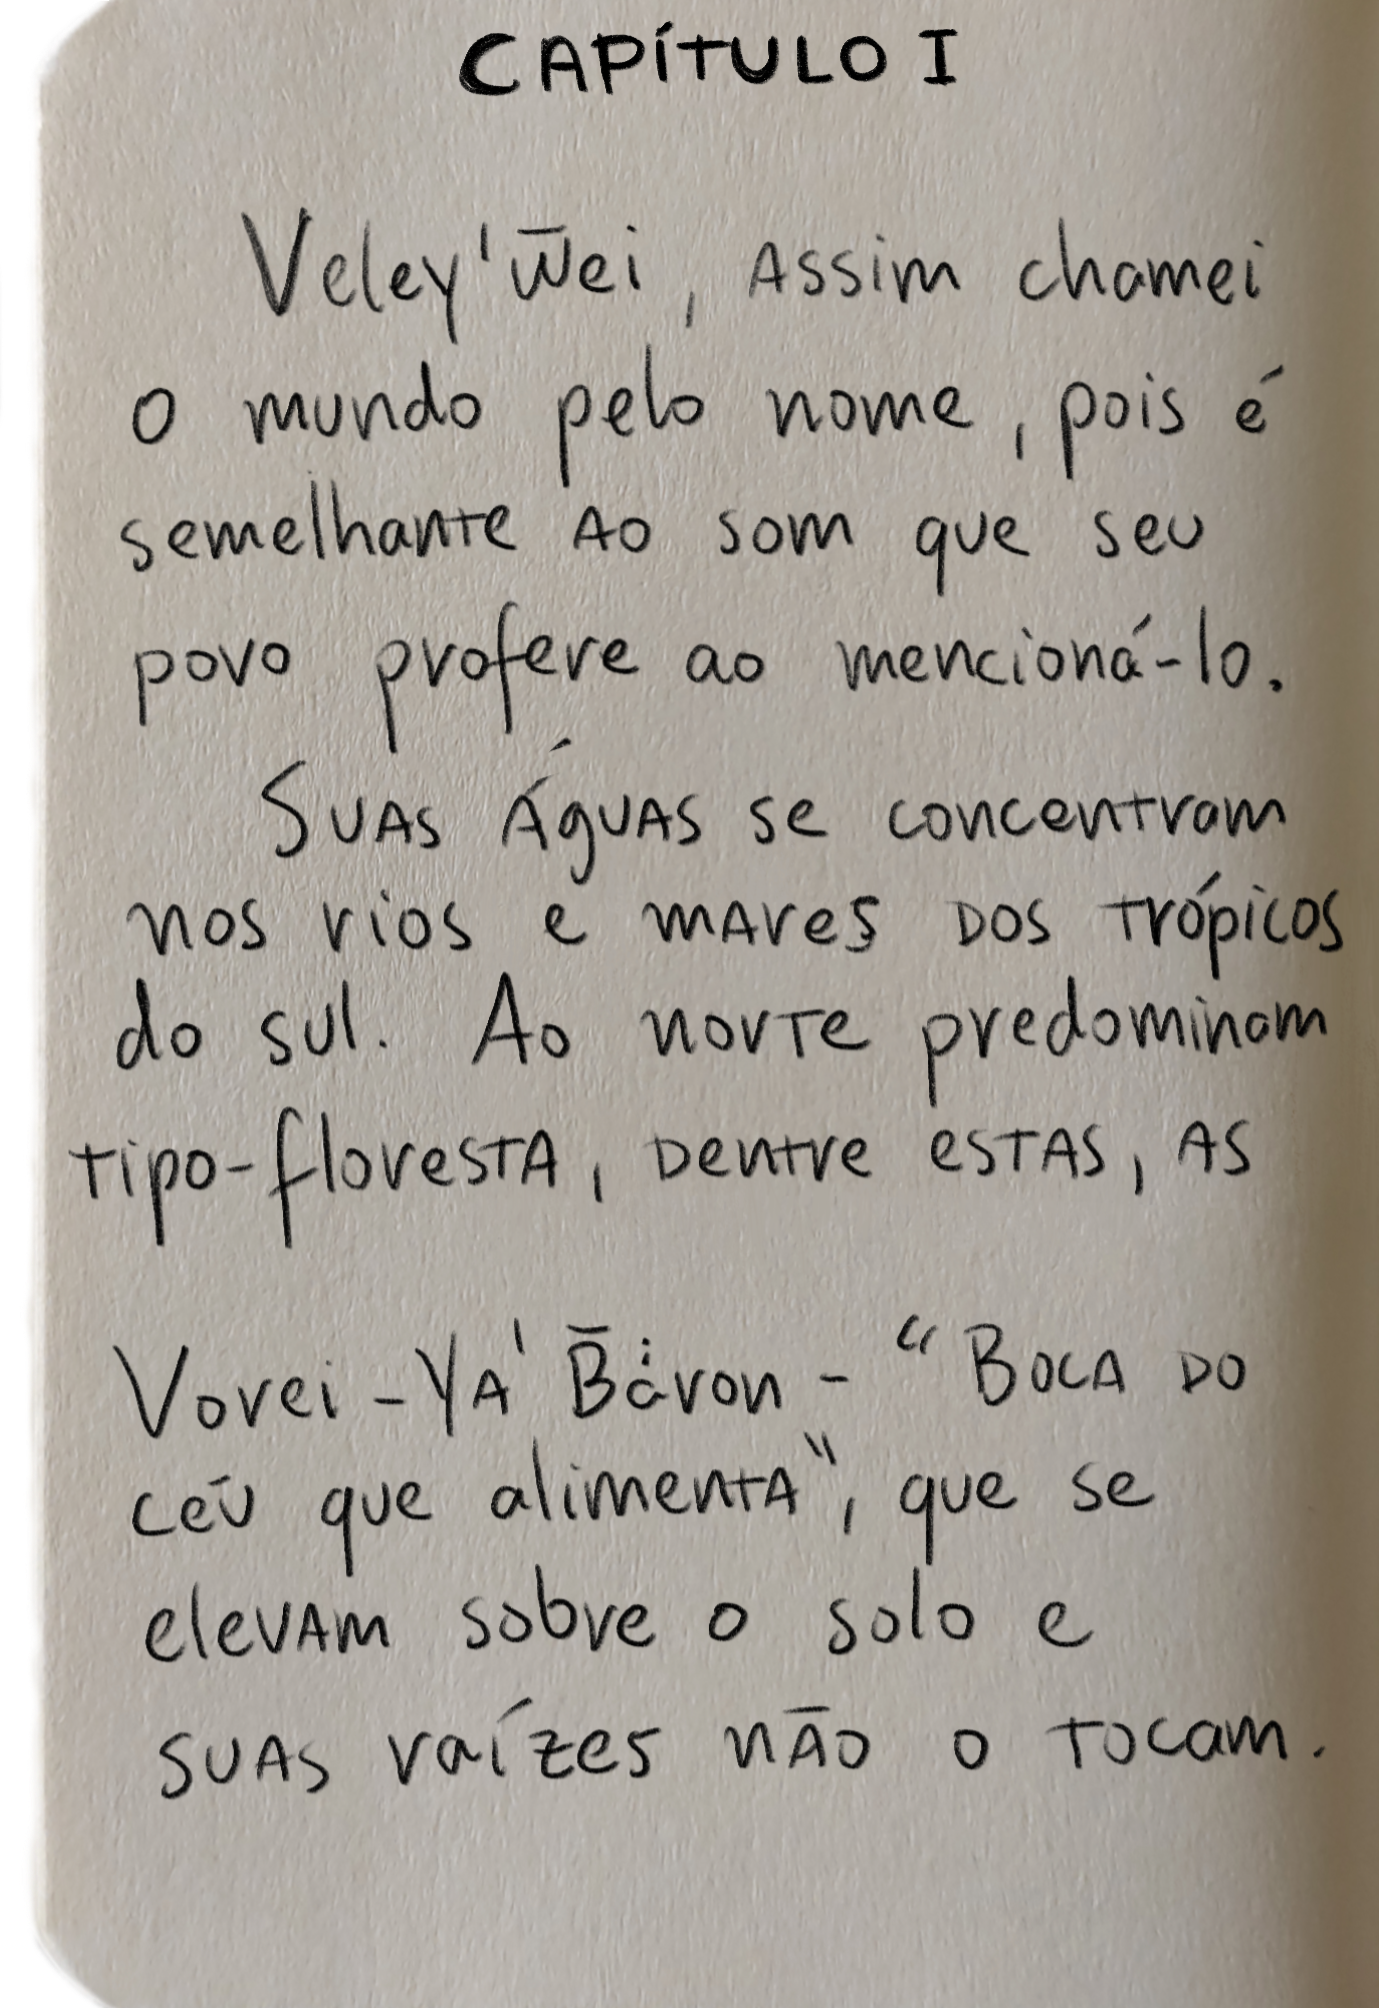 CAPÍTULO I
Veley'w̄ei, Assim chamei
o mundo pelo nome, pois é
semelhante Ao som que seu
povo profere ao mencioná-lo.
Suas Águas se concentram
nos rios e mares dos trópicos
do sul. Ao norte predominam
tipo-floresta, dentre estas, as
Vorei-YA' B̄ȧ̇ron - "Boca do
céu que alimenta", que se
elevam sobre o solo e
suas raízes não o tocam.